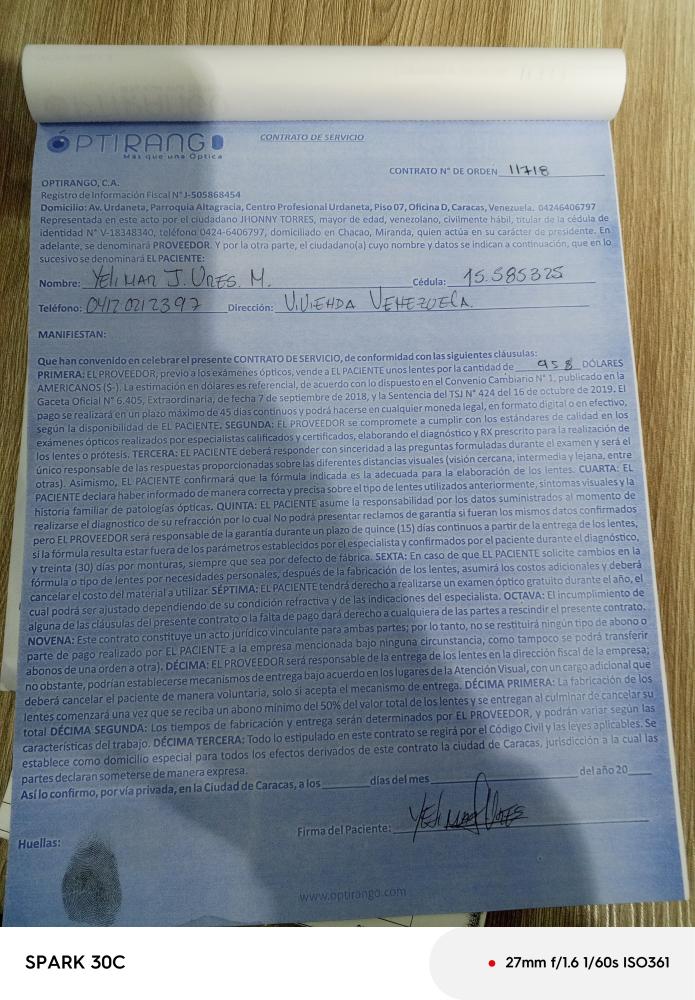 ÓPTIRANGO
Más que una Óptica
CONTRATO DE SERVICIO
CONTRATO N° DE ORDEN 11718
OPTIRANGO, C.A.
Registro de Información Fiscal N° J-505868454
Domicilio: Av. Urdaneta, Parroquia Altagracia, Centro Profesional Urdaneta, Piso 07, Oficina D, Caracas, Venezuela. 04246406797
Representada en este acto por el ciudadano JHONNY TORRES, mayor de edad, venezolano, civilmente hábil, titular de la cédula de
identidad N° V-18348340, teléfono 0424-6406797, domiciliado en Chacao, Miranda, quien actúa en su carácter de presidente. En
adelante, se denominará PROVEEDOR. Y por la otra parte, el ciudadano(a) cuyo nombre y datos se indican a continuación, que en lo
sucesivo se denominará EL PACIENTE:
Nombre: Yelimar J. Ures. M. Cédula: 15.585325
Teléfono: 04120212397 Dirección: Vivienda Venezuela.
MANIFIESTAN:
Que han convenido en celebrar el presente CONTRATO DE SERVICIO, de conformidad con las siguientes cláusulas:
PRIMERA: EL PROVEEDOR, previo a los exámenes ópticos, vende a EL PACIENTE unos lentes por la cantidad de 958 DÓLARES
AMERICANOS ($-). La estimación en dólares es referencial, de acuerdo con lo dispuesto en el Convenio Cambiario N° 1, publicado en la
Gaceta Oficial N° 6.405, Extraordinaria, de fecha 7 de septiembre de 2018, y la Sentencia del TSJ N° 424 del 16 de octubre de 2019. El
pago se realizará en un plazo máximo de 45 días continuos y podrá hacerse en cualquier moneda legal, en formato digital o en efectivo,
según la disponibilidad de EL PACIENTE. SEGUNDA: EL PROVEEDOR se compromete a cumplir con los estándares de calidad en los
exámenes ópticos realizados por especialistas calificados y certificados, elaborando el diagnóstico y RX prescrito para la realización de
los lentes o prótesis. TERCERA: EL PACIENTE deberá responder con sinceridad a las preguntas formuladas durante el examen y será el
único responsable de las respuestas proporcionadas sobre las diferentes distancias visuales (visión cercana, intermedia y lejana, entre
otras). Asimismo, EL PACIENTE confirmará que la fórmula indicada es la adecuada para la elaboración de los lentes. CUARTA: EL
PACIENTE declara haber informado de manera correcta y precisa sobre el tipo de lentes utilizados anteriormente, síntomas visuales y la
historia familiar de patologías ópticas. QUINTA: EL PACIENTE asume la responsabilidad por los datos suministrados al momento de
realizarse el diagnostico de su refracción por lo cual No podrá presentar reclamos de garantía si fueran los mismos datos confirmados
pero EL PROVEEDOR será responsable de la garantía durante un plazo de quince (15) días continuos a partir de la entrega de los lentes,
si la fórmula resulta estar fuera de los parámetros establecidos por el especialista y confirmados por el paciente durante el diagnóstico,
y treinta (30) días por monturas, siempre que sea por defecto de fábrica. SEXTA: En caso de que EL PACIENTE solicite cambios en la
fórmula o tipo de lentes por necesidades personales, después de la fabricación de los lentes, asumirá los costos adicionales y deberá
cancelar el costo del material a utilizar. SÉPTIMA: EL PACIENTE tendrá derecho a realizarse un examen óptico gratuito durante el año, el
cual podrá ser ajustado dependiendo de su condición refractiva y de las indicaciones del especialista. OCTAVA: El incumplimiento de
alguna de las cláusulas del presente contrato o la falta de pago dará derecho a cualquiera de las partes a rescindir el presente contrato.
NOVENA: Este contrato constituye un acto jurídico vinculante para ambas partes; por lo tanto, no se restituirá ningún tipo de abono o
parte de pago realizado por EL PACIENTE a la empresa mencionada bajo ninguna circunstancia, como tampoco se podrá transferir
abonos de una orden a otra). DÉCIMA: EL PROVEEDOR será responsable de la entrega de los lentes en la dirección fiscal de la empresa;
no obstante, podrían establecerse mecanismos de entrega bajo acuerdo en los lugares de la Atención Visual, con un cargo adicional que
deberá cancelar el paciente de manera voluntaria, solo si acepta el mecanismo de entrega. DÉCIMA PRIMERA: La fabricación de los
lentes comenzará una vez que se reciba un abono mínimo del 50% del valor total de los lentes y se entregan al culminar de cancelar su
total DÉCIMA SEGUNDA: Los tiempos de fabricación y entrega serán determinados por EL PROVEEDOR, y podrán variar según las
características del trabajo. DÉCIMA TERCERA: Todo lo estipulado en este contrato se regirá por el Código Civil y las leyes aplicables. Se
establece como domicilio especial para todos los efectos derivados de este contrato la ciudad de Caracas, jurisdicción a la cual las
partes declaran someterse de manera expresa.
Así lo confirmo, por vía privada, en la Ciudad de Caracas, a los ______ días del mes ______ del año 20___
Firma del Paciente: Yelimar Ures
Huellas:
www.optirango.com
SPARK 30C
27mm f/1.6 1/60s ISO361